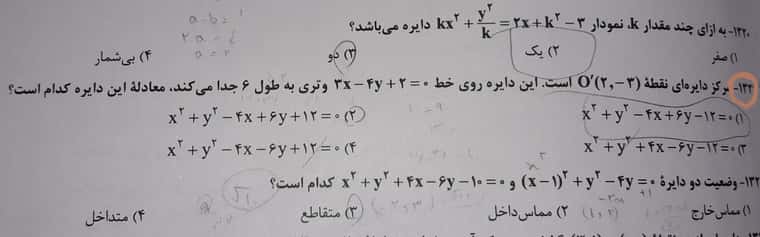 ۱۳۲۰- به ازای چند مقدار k، نمودار kx² + y²/k = ۲x + k² − ۳ دایره می‌باشد؟
۱) صفر ۲) یک ۳) دو ۴) بی‌شمار
مرکز دایره‌ای نقطهٔ O′(۲, −۳) است. این دایره روی خط ۳x − ۴y + ۲ = ۰ وتری به طول ۶ جدا می‌کند، معادلهٔ این دایره کدام است؟
۱) x² + y² − ۴x + ۶y − ۱۲ = ۰ ۲) x² + y² − ۴x + ۶y + ۱۲ = ۰
۳) x² + y² + ۴x − ۶y − ۱۲ = ۰ ۴) x² + y² − ۴x − ۶y + ۱۲ = ۰
وضعیت دو دایرهٔ (x − ۱)² + y² − ۴y = ۰ و x² + y² + ۴x − ۶y − ۱۰ = ۰ کدام است؟
۱) مماس خارج ۲) مماس داخل ۳) متقاطع ۴) متداخل